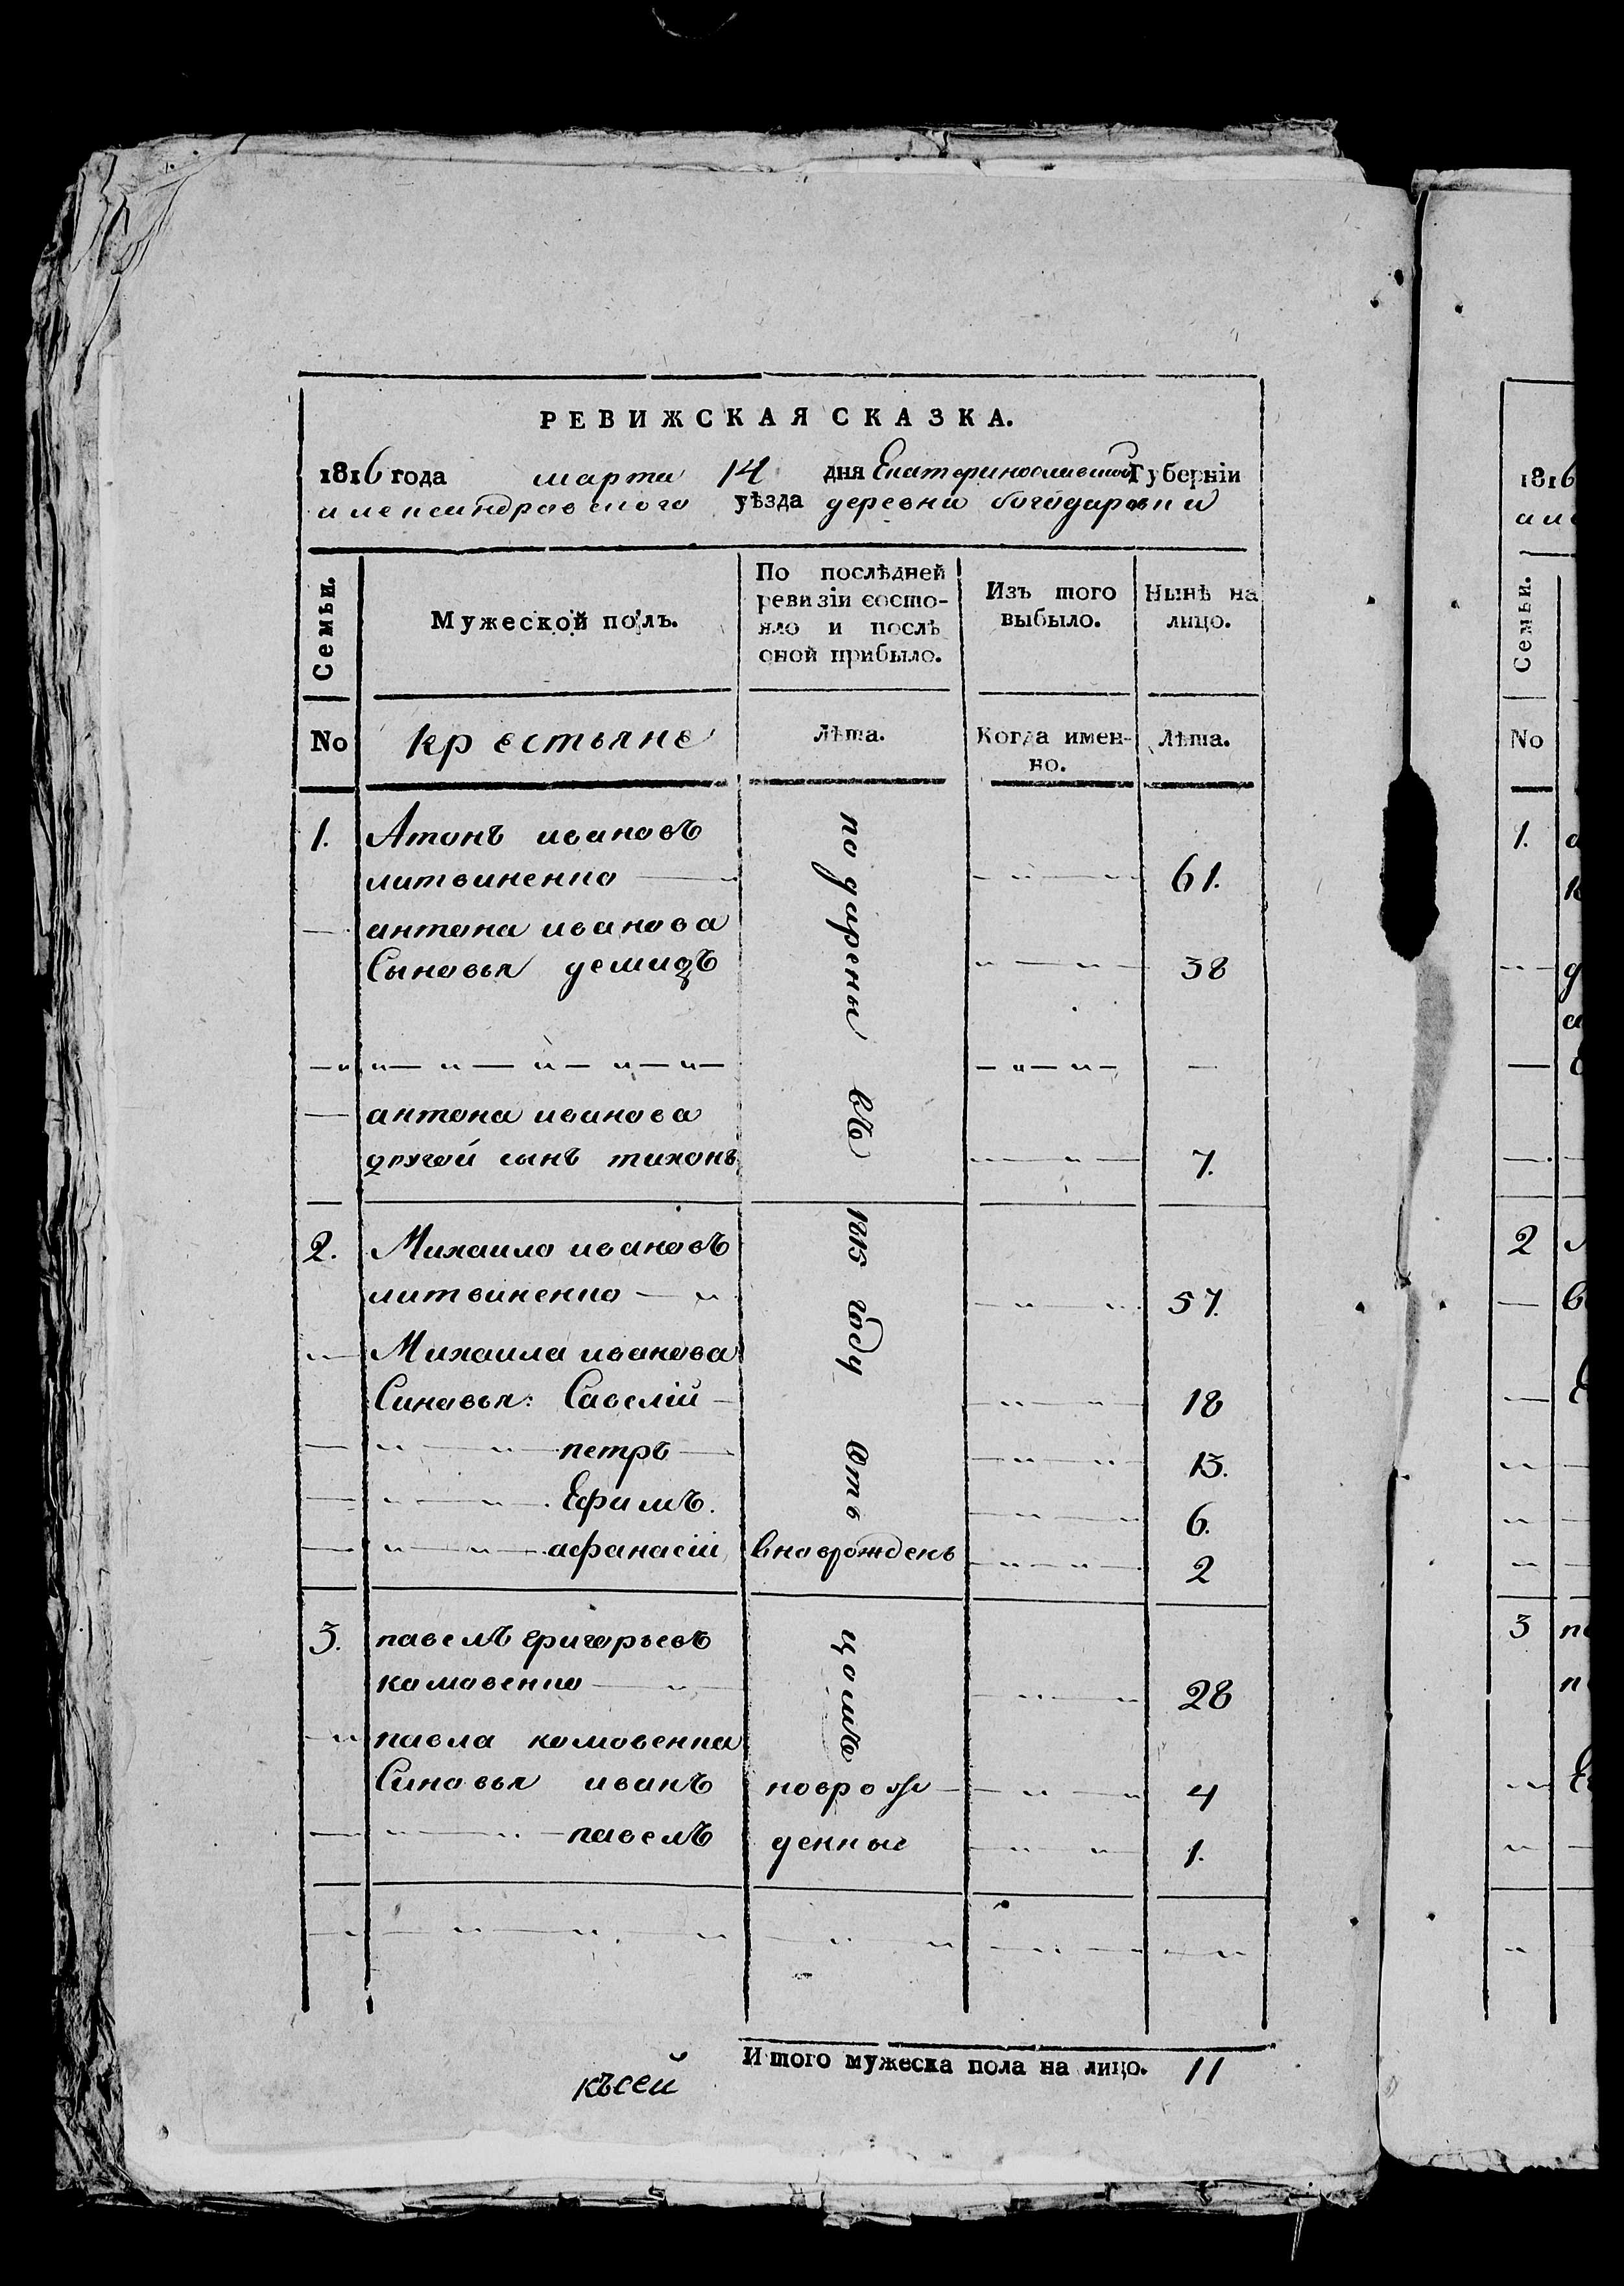 РЕВИЖСКАЯ СКАЗКА.
1816 года марта 14 дня Екатеринославской Губерніи
александровского уѣзда деревни богодаровки
Семьи.
Мужеской полъ.
По послѣдней
ревизіи состо-
яло и послѣ
оной прибыло.
Изъ того
выбыло.
Нынѣ на
лицо.
No
крестьяне
Лѣта.
Когда имен-
но.
Лѣта.
1. Атонъ ивановъ
литвиненко 61.
антона иванова
Сыновья демидъ 38
антона иванова
другой сынъ тихонъ 7.
2. Михаило ивановъ
литвиненко 57.
Михаила иванова
Синовья: Савелій 18
петръ 13.
Ефимъ. 6.
афанасій вноврожденъ 2
3. павелъ григорьевъ
комовенко 28
павла комовенка
Синовья иванъ новрож 4
павелъ денные 1.
подарены въ 1815 году отъ
Итого мужеска пола на лицо. 11
късей
1816
але
Семьи.
No
1.
2
3